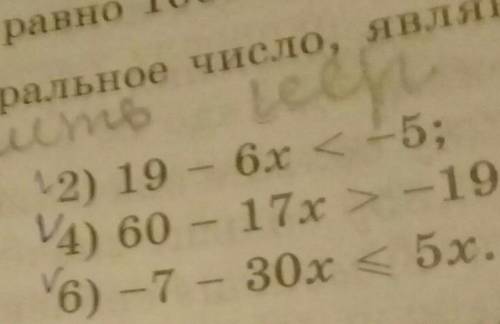 равно
ральное число,
2) 19 − 6x < −5;
4) 60 − 17x > −19
6) −7 − 30x ⩽ 5x.